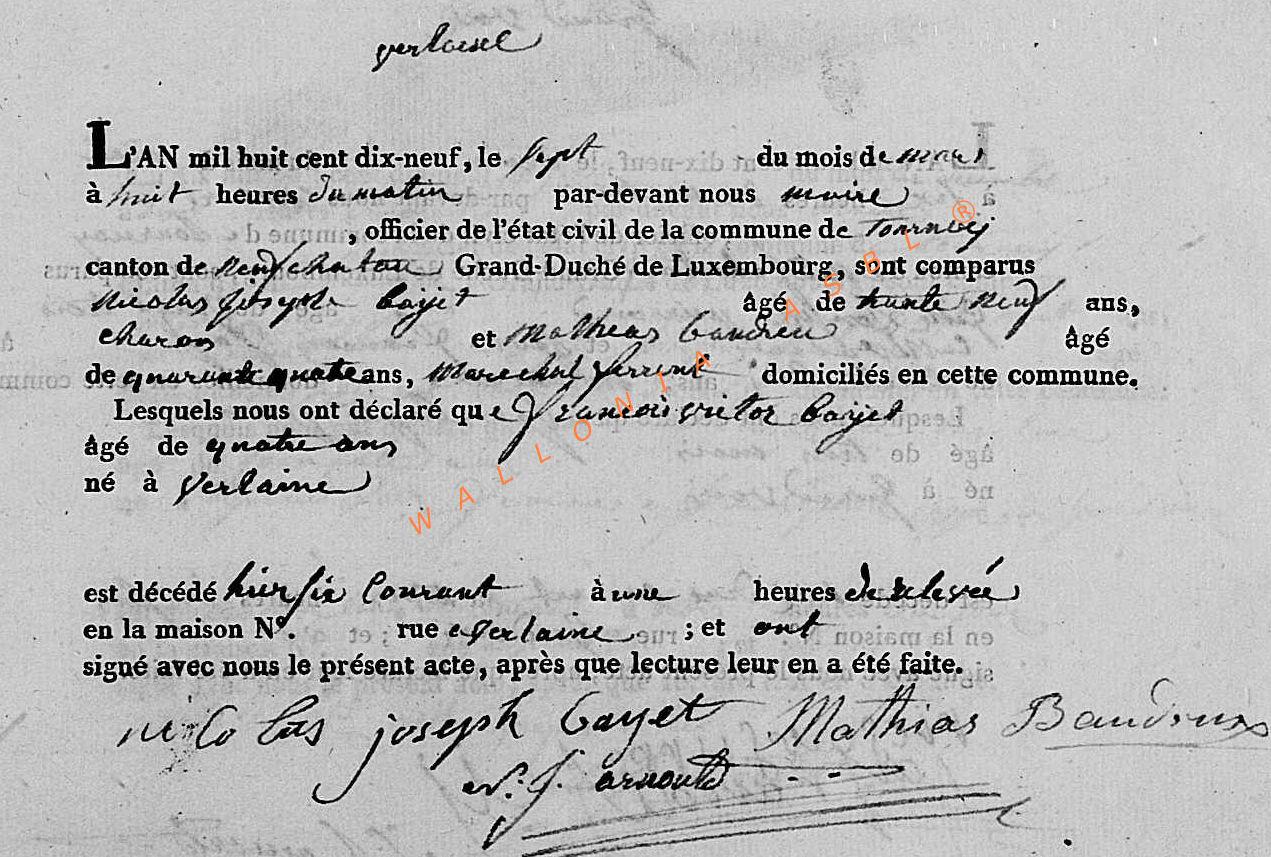 verlaine
L'AN mil huit cent dix-neuf, le sept du mois de mars
à huit heures du matin par-devant nous maire
, officier de l'état civil de la commune de Tournay
canton de neufchateau Grand-Duché de Luxembourg, sont comparus
Nicolas joseph bayet âgé de trente neuf ans,
charon et Mathias baudreu âgé
de quarante quatre ans, marechal ferrent domiciliés en cette commune.
Lesquels nous ont déclaré que francois victor bayet
âgé de quatre ans
né à verlaine
est décédé hier six courant à une heures de relevée
en la maison N°. rue verlaine ; et ont
signé avec nous le présent acte, après que lecture leur en a été faite.
nicolas joseph bayet Mathias Baudrux
N. J. arnould
WALLONIA ASBL ®